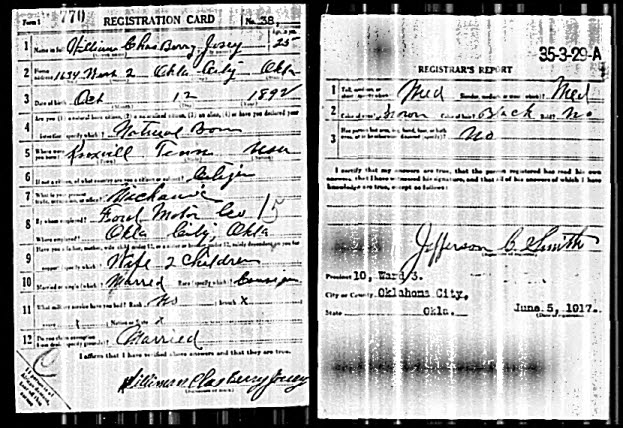 Form 1 770 REGISTRATION CARD No. 38
1 Name in full William Chas Berry Josey 25
2 Home address 1634 West 2 Okla City Okla
3 Date of birth Oct 12 1892
4 Are you (1) a natural born citizen, (2) a naturalized citizen, (3) an alien, (4) or have you declared your
intention (specify which)? Natural Born
5 Where were you born? Tenn
6 If not a citizen, of what country are you a citizen or subject? Citizen
7 What is your present trade, occupation, or office? Mechanic
8 By whom employed? Ford Motor Co 15
Where employed? Okla City, Okla
9 Have you a father, mother, wife, child under 12, or a sister or brother under 12, solely dependent on you for
support (specify which)? Wife 2 Children
10 Married or single (which)? Married Race (specify which)?
11 What military service have you had? Rank No branch X
years Nation or State X
12 Do you claim exemption from draft (specify grounds)? Married
I affirm that I have verified above answers and that they are true.
William Chas Berry Josey
35-3-29-A
REGISTRAR'S REPORT
1 Tall, medium, or short (specify which)? Med Slender, medium, or stout (which)? Med
2 Color of eyes? Brown Color of hair? Black Bald? No
3 Has person lost arm, leg, hand, foot, or both eyes, or is he otherwise disabled (specify)? No
I certify that my answers are true, that the person registered has read his own
answers, that I have witnessed his signature, and that all of his answers of which I have
knowledge are true, except as follows:
Jefferson C. Smith
Precinct 10, Ward 3.
City or County Oklahoma City,
State Okla. June 5, 1917.